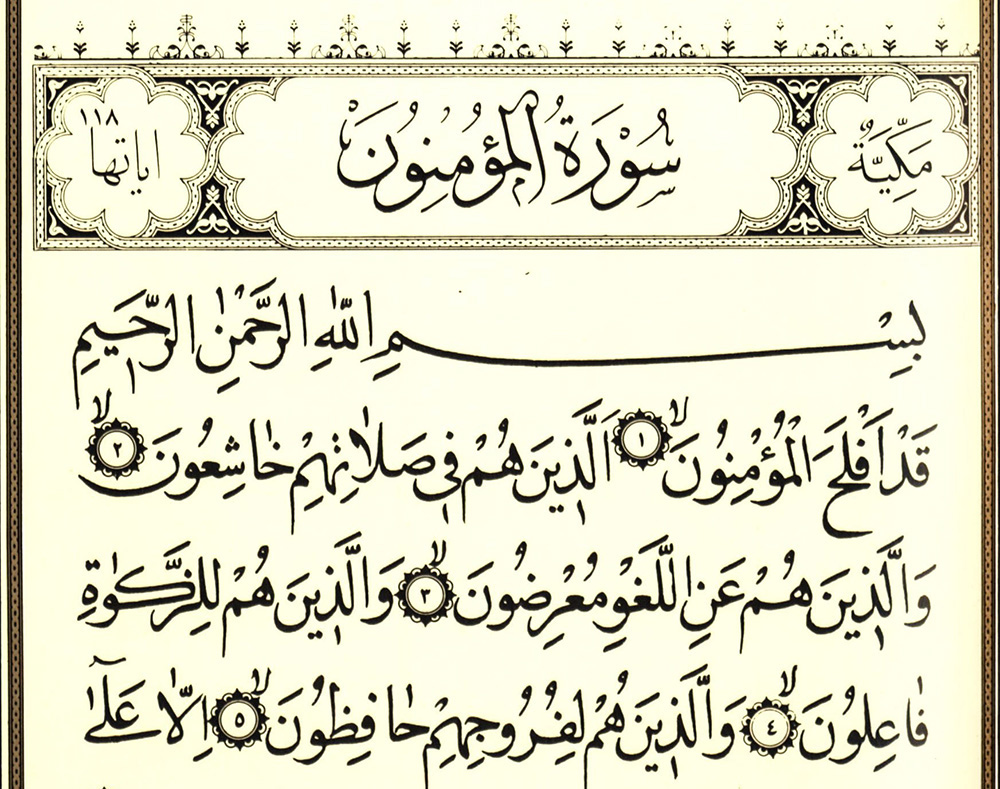 مَكِّيَّةٌ
سُوْرَةُ الْمُؤْمِنُونَ
اياتها ١١٨
بِسْمِ اللّٰهِ الرَّحْمٰنِ الرَّحٖيمِ
قَدْ اَفْلَحَ الْمُؤْمِنُونَۙ ١ اَلَّذٖينَ هُمْ فٖي صَلَاتِهِمْ خَاشِعُونَۙ ٢
وَالَّذٖينَ هُمْ عَنِ اللَّغْوِ مُعْرِضُونَۙ ٣ وَالَّذٖينَ هُمْ لِلزَّكٰوةِ
فَاعِلُونَۙ ٤ وَالَّذٖينَ هُمْ لِفُرُوجِهِمْ حَافِظُونَۙ ٥ اِلَّا عَلٰٓى